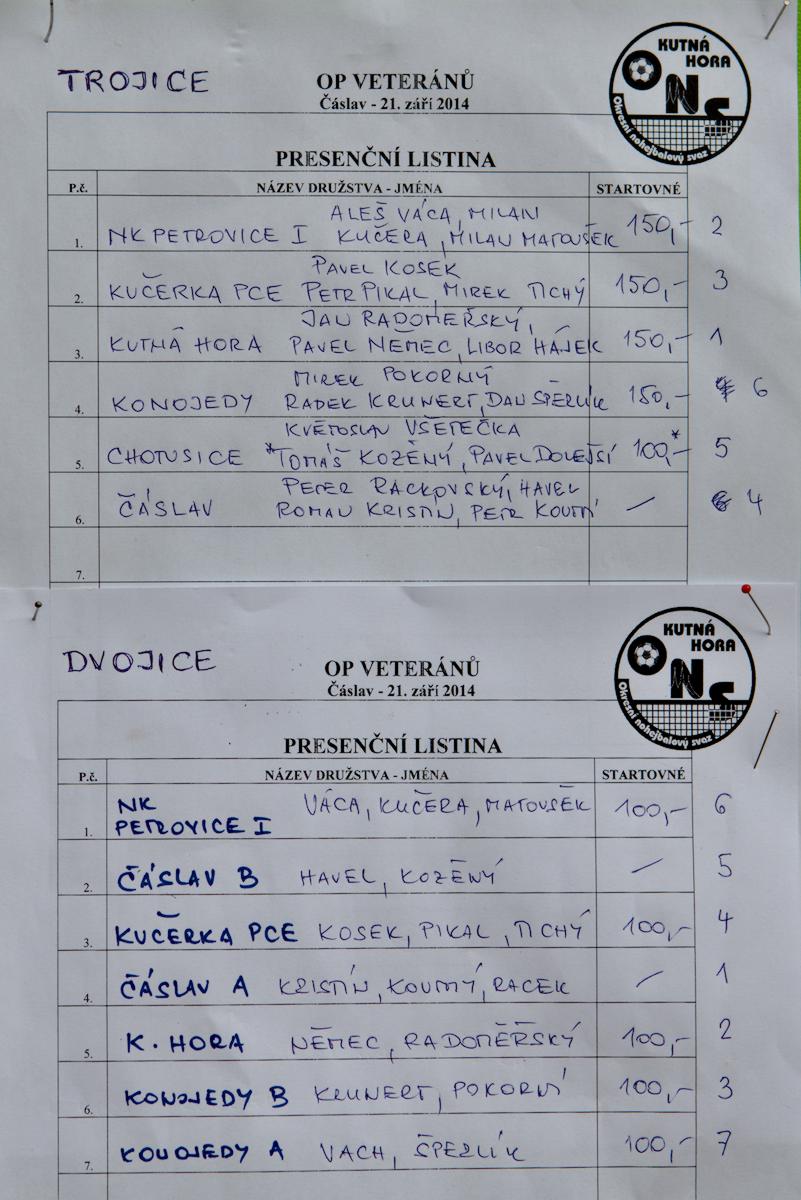 TROJICE
OP VETERÁNŮ
Čáslav - 21. září 2014
KUTNÁ HORA
ONS
Okresní nohejbalový svaz
PRESENČNÍ LISTINA
P.č. NÁZEV DRUŽSTVA - JMÉNA STARTOVNÉ
ALEŠ VÁCA, MILAN
1. NK PETROVICE I KUČERA, MILAN MATOUŠEK 150,- 2
PAVEL KOSEK
2. KUČERKA PCE PETR PIKAL, MIREK TICHÝ 150,- 3
JAN RADOMĚŘSKÝ,
3. KUTNÁ HORA PAVEL NĚMEC, LIBOR HÁJEK 150,- 1
MIREK POKORNÝ
4. KONOJEDY RADEK KRUNERT, DAN ŠPERLÍK 150,- 6
KVĚTOSLAV VŠETEČKA
5. CHOTUSICE *TOMÁŠ KOZĚNÝ, PAVEL DOLEJŠÍ 100,-* 5
PETER RACKOVSKÝ, HAVEL
6. ČÁSLAV ROMAN KRISTÍN, PETR KOUTNÝ — 4
7.
DVOJICE
OP VETERÁNŮ
Čáslav - 21. září 2014
KUTNÁ HORA
ONS
Okresní nohejbalový svaz
PRESENČNÍ LISTINA
P.č. NÁZEV DRUŽSTVA - JMÉNA STARTOVNÉ
NK
1. PETROVICE I VÁCA, KUČERA, MATOUŠEK 100,- 6
2. ČÁSLAV B HAVEL, KOZĚNÝ — 5
3. KUČERKA PCE KOSEK, PIKAL, TICHÝ 100,- 4
4. ČÁSLAV A KRISTÍN, KOUTNÝ, RACEK — 1
5. K. HORA NĚMEC, RADOMĚŘSKÝ 100,- 2
6. KONOJEDY B KRUNERT, POKORNÝ 100,- 3
7. KONOJEDY A VACH, ŠPERLÍK 100,- 7